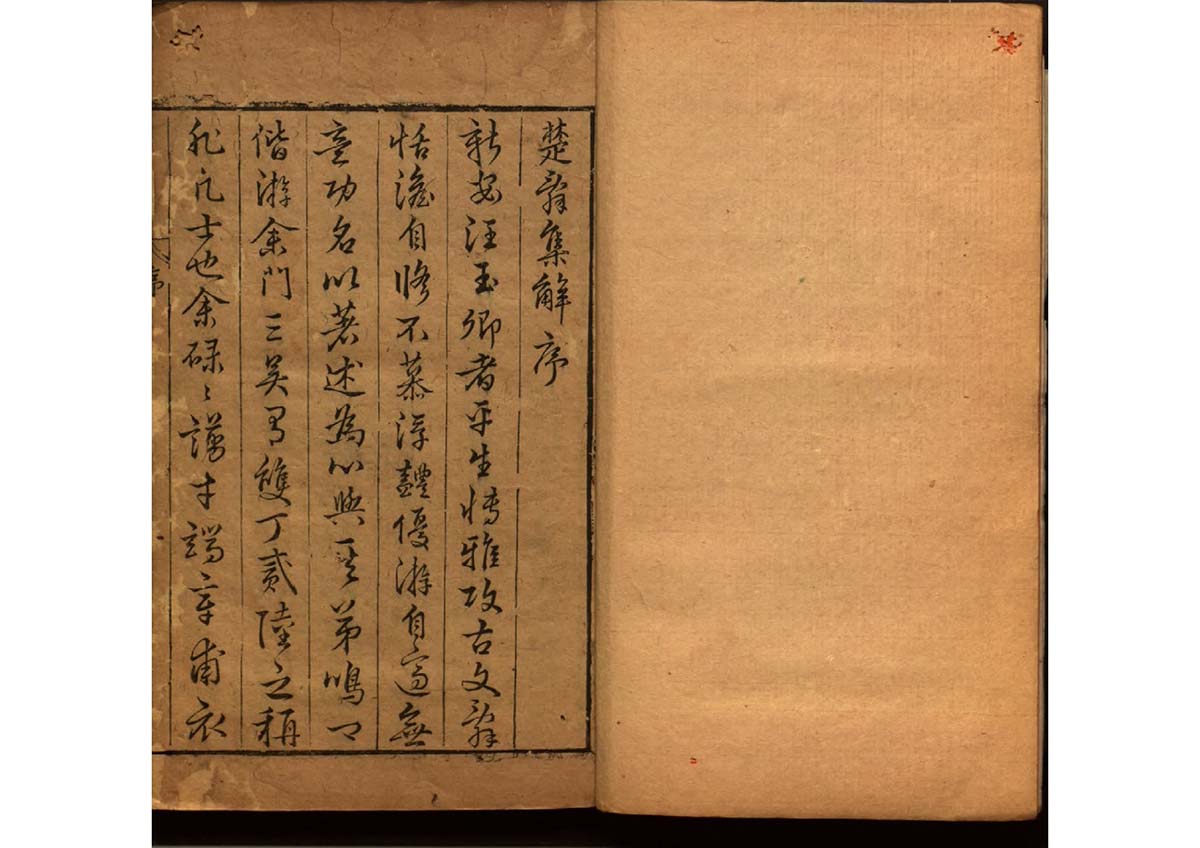 楚辭集解序
新安汪玉卿者平生博雅攻古文辭
恬澹自脩不慕浮豔優游自適無
意功名以著述為心與其弟鳴卿
偕游余門三吳有雙丁貳陸之稱
非凡士也余碌〻譾才端章甫衣
序